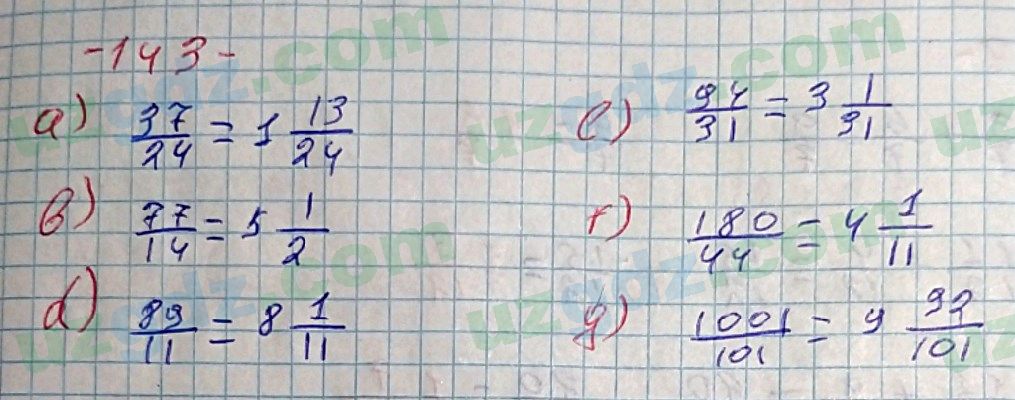 -143-
a) 37/24 = 1 13/24
b) 77/14 = 5 1/2
d) 89/11 = 8 1/11
e) 94/31 = 3 1/31
f) 180/44 = 4 1/11
g) 1001/101 = 9 92/101
uzgdz.com